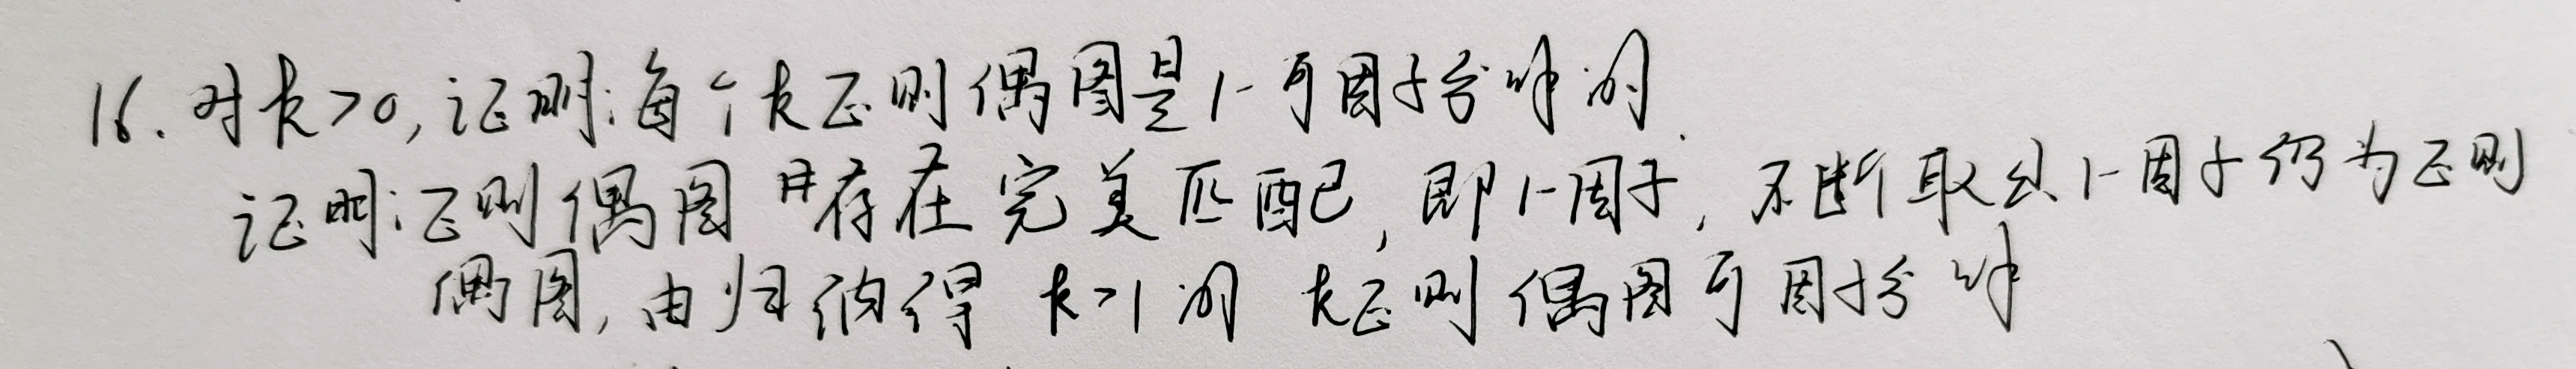 16. 对k>0,证明:每个k正则偶图是1-可因子分解的.
证明:正则偶图中存在完美匹配,即1-因子,不断取出1-因子仍为正则
偶图,由归纳得 k>1的 k正则偶图可因子分解